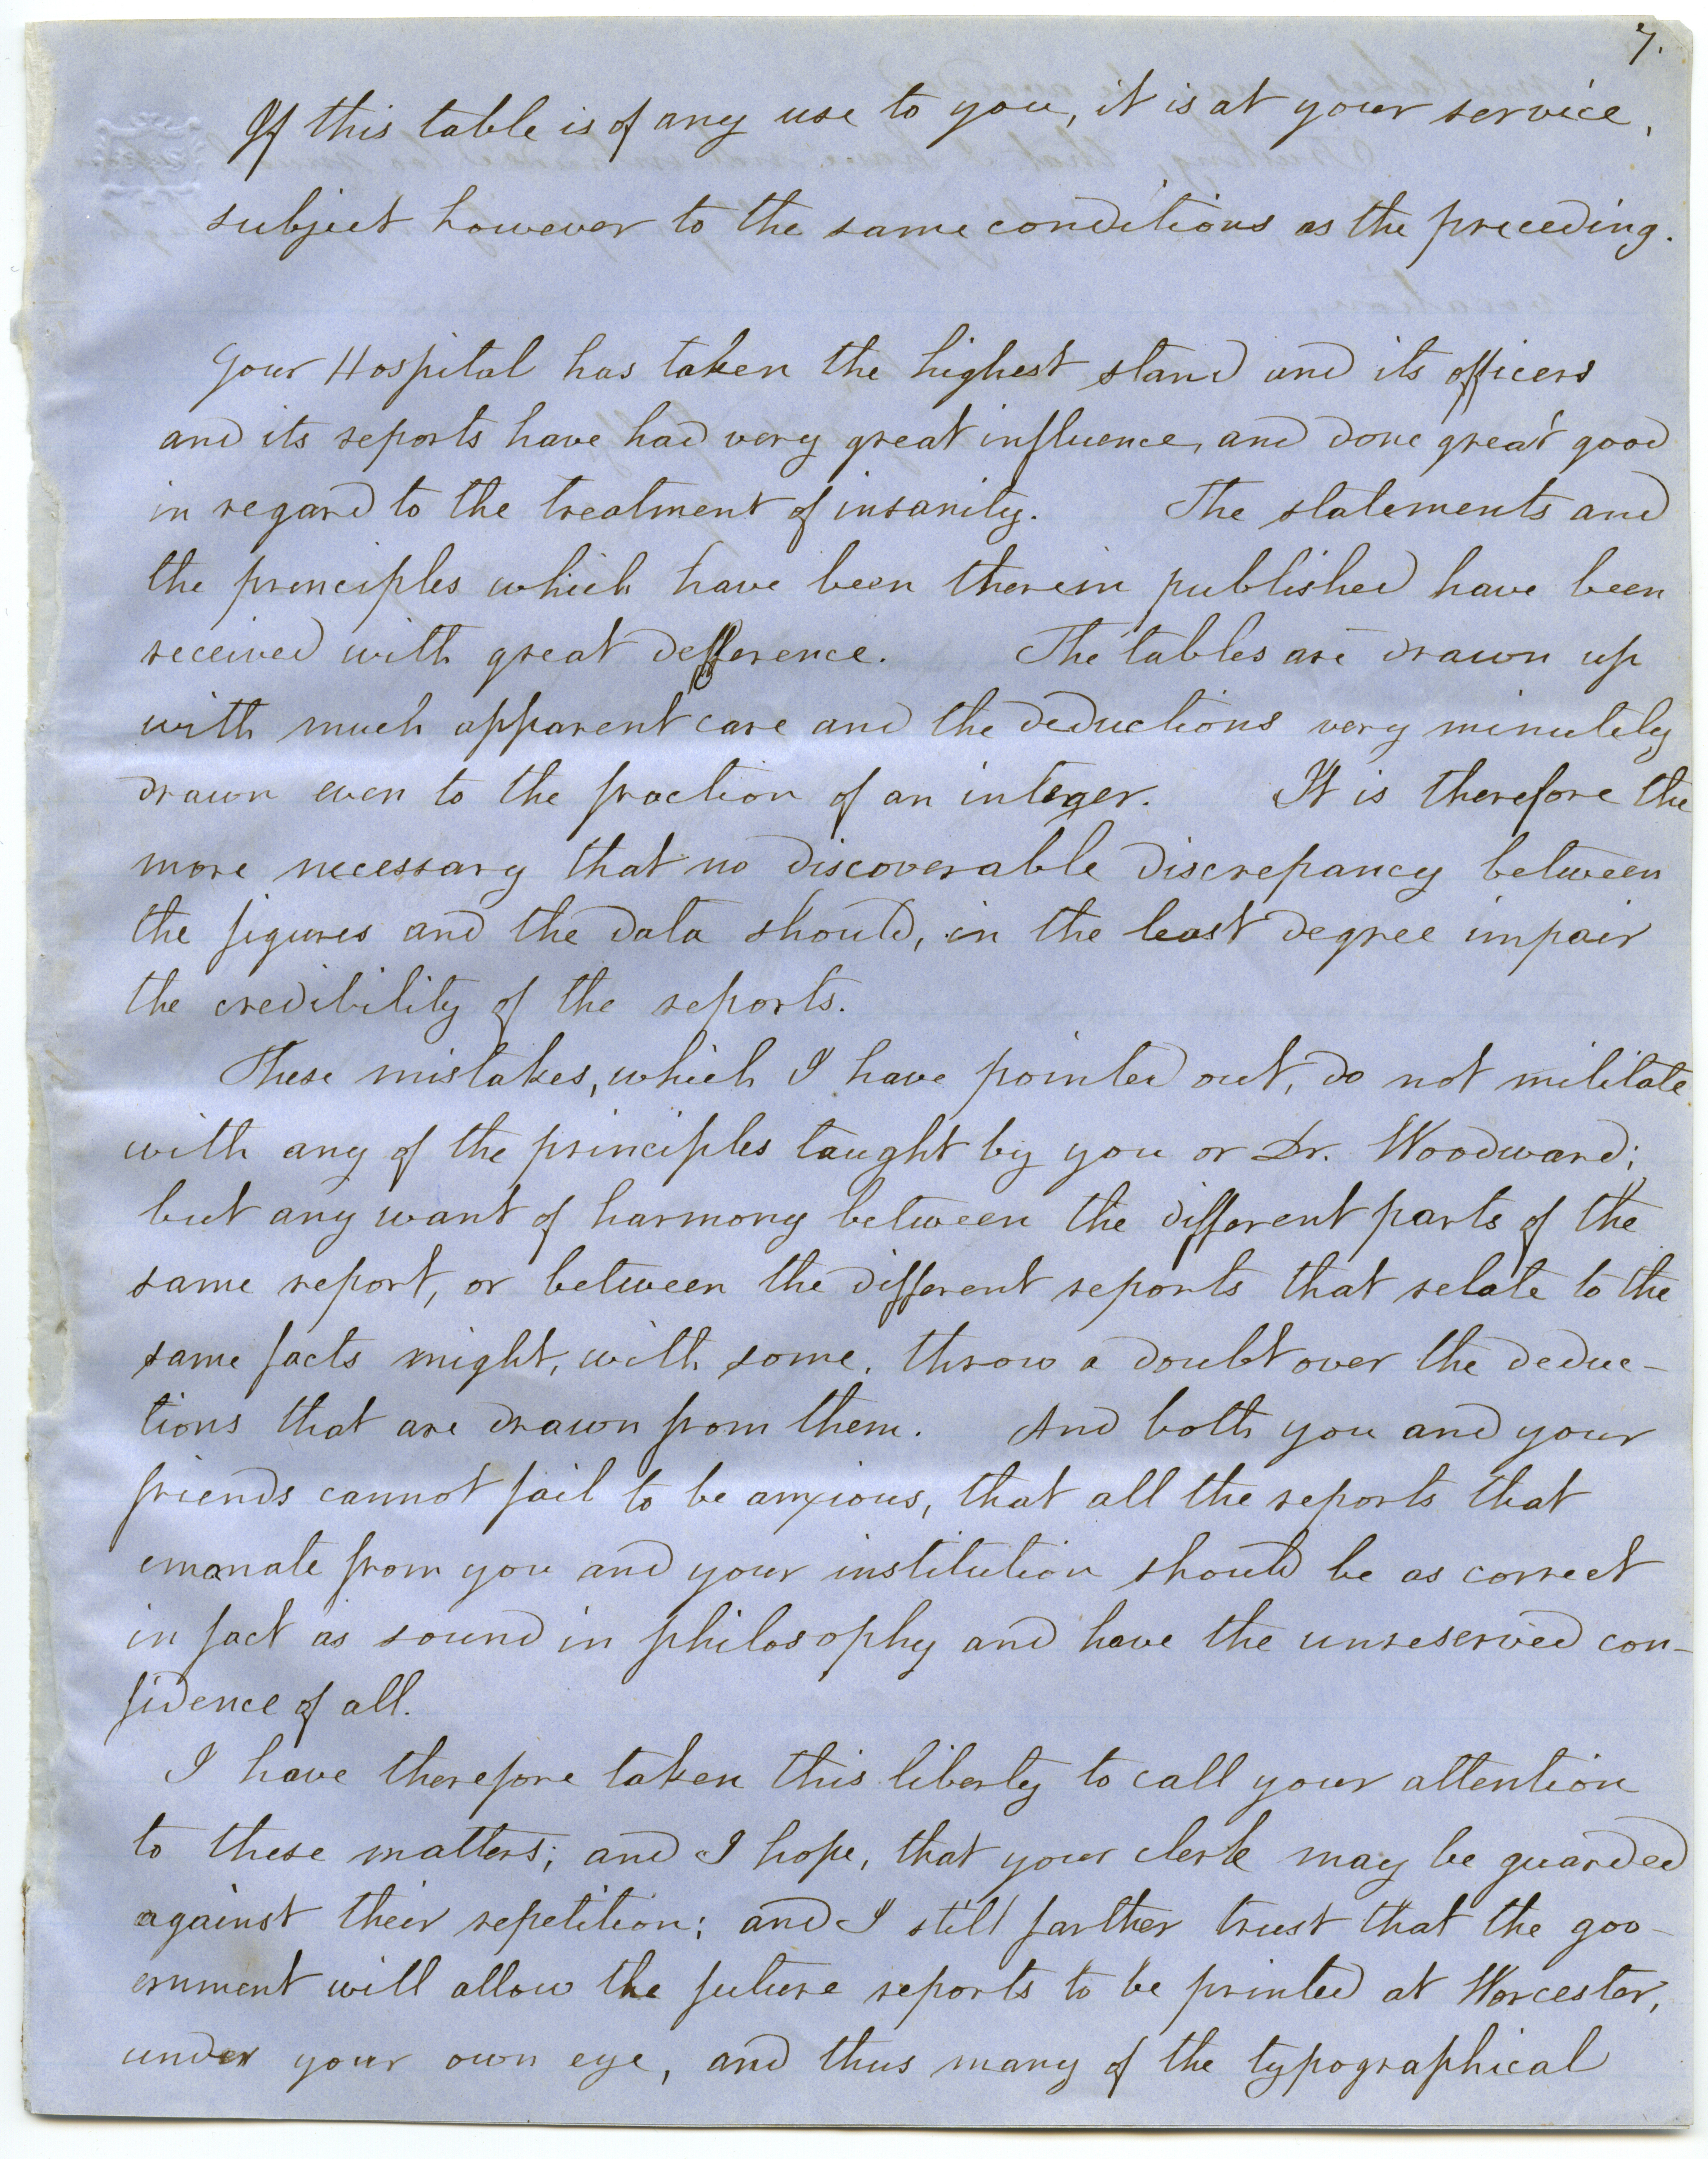 7.
If this table is of any use to you, it is at your service,
subject however to the same conditions as the preceding.
Your Hospital has taken the highest stand and its officers
and its reports have had very great influence, and done great good
in regard to the treatment of insanity. The statements and
the principles which have been therein published have been
received with great defference. The tables are drawn up
with much apparent care and the deductions very minutely
drawn even to the fraction of an integer. It is therefore the
more necessary that no discoverable discrepancy between
the figures and the data should, in the least degree impair
the credibility of the reports.
These mistakes, which I have pointed out, do not militate
with any of the principles taught by you or Dr. Woodward;
but any want of harmony between the different parts of the
same report, or between the different reports that relate to the
same facts might, with some, throw a doubt over the deduc-
tions that are drawn from them. And both you and your
friends cannot fail to be anxious, that all the reports that
emanate from you and your institution should be as correct
in fact as sound in philosophy and have the unreserved con-
fidence of all.
I have therefore taken this liberty to call your attention
to these matters; and I hope, that your clerk may be guarded
against their repetition; and I still farther trust that the gov-
ernment will allow the future reports to be printed at Worcester,
under your own eye, and thus many of the typographical